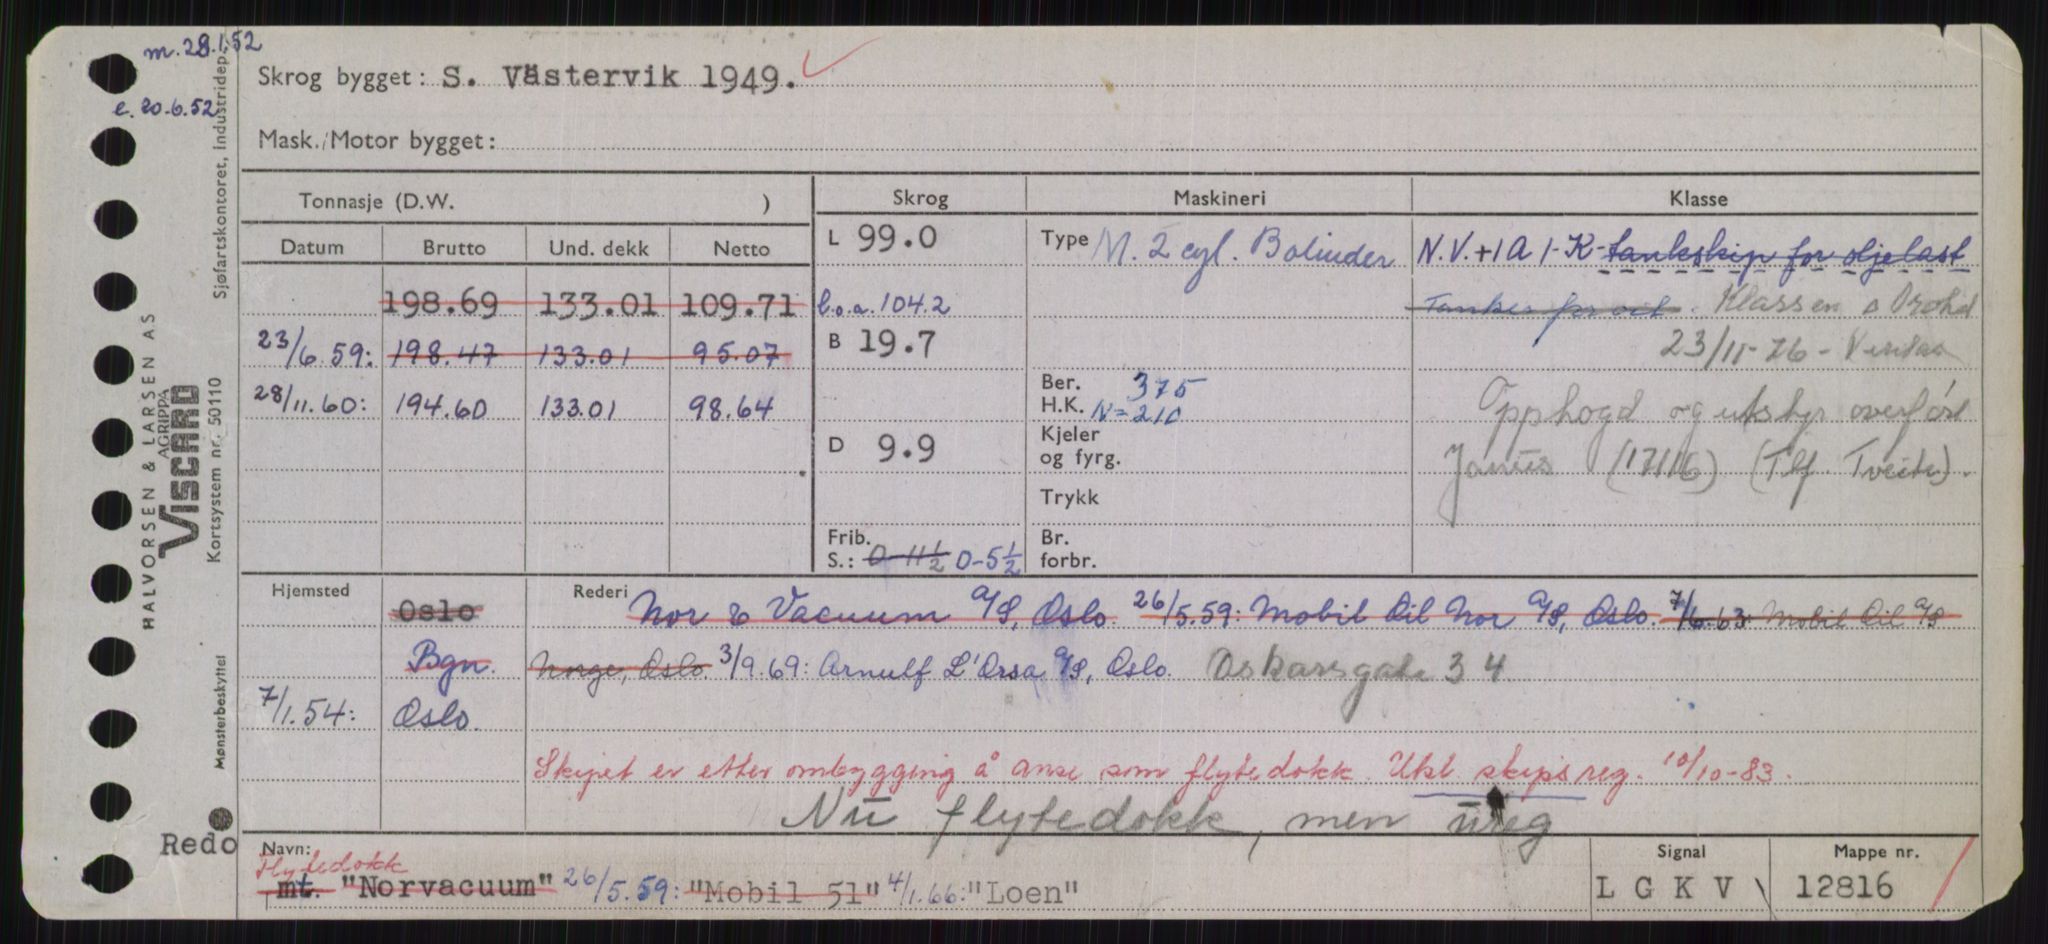 m. 28.1.52
e. 20.6.52
Skrog bygget: S. Västervik 1949.
Mask./Motor bygget:
Tonnasje (D.W. )
Skrog
Maskineri
Klasse
Datum Brutto Und. dekk Netto
L 99.0
Type M. 2 cyl. Bolinder
N.V. +1A 1-K- tankskip for oljelast
198.69 133.01 109.71
l.o.a. 104.2
Tanker for oil. Klassen
23/11-76 - Veritas
23/6.59: 198.47 133.01 95.07
B 19.7
28/11.60: 194.60 133.01 98.64
Ber. H.K. 375
N=210
Opphogd og utstyr overført
D 9.9
Kjeler og fyrg.
Janus (17116) (Tlf. Tveite).
Trykk
Frib. S.: 0-11½ 0-5½
Br. forbr.
Hjemsted
Oslo
Rederi Nor Vacuum A/S, Oslo. 26/5.59: Mobil Oil Nor A/S, Oslo. 7/6.63: Mobil Oil A/S
Bgn.
Norge, Oslo. 3/9.69: Arnulf L'Orsa A/S, Oslo. Oskarsgate 34
7/1.54: Oslo.
Skipet er etter ombygging å anse som flytedokk. Utsl. skipsreg. 10/10-83.
Nu flytedokk, men ureg
Navn:
Flytedokk
mt. "Norvacuum" 26/5.59: "Mobil 51" 4/1.66: "Loen"
Signal
L G K V
Mappe nr.
12816
Redo
HALVORSEN & LARSEN AS
AGRIPPA
VISCARD
Kortsystem nr. 50110
Sjøfartskontoret, Industridep
Mønsterbeskyttet